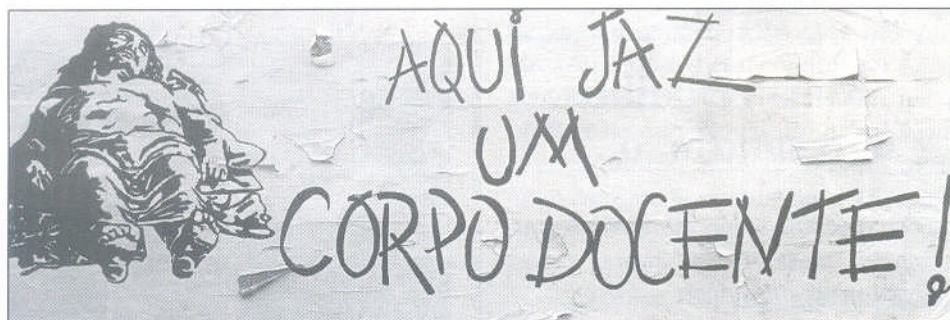 AQUI JAZ
UM
CORPO DOCENTE!